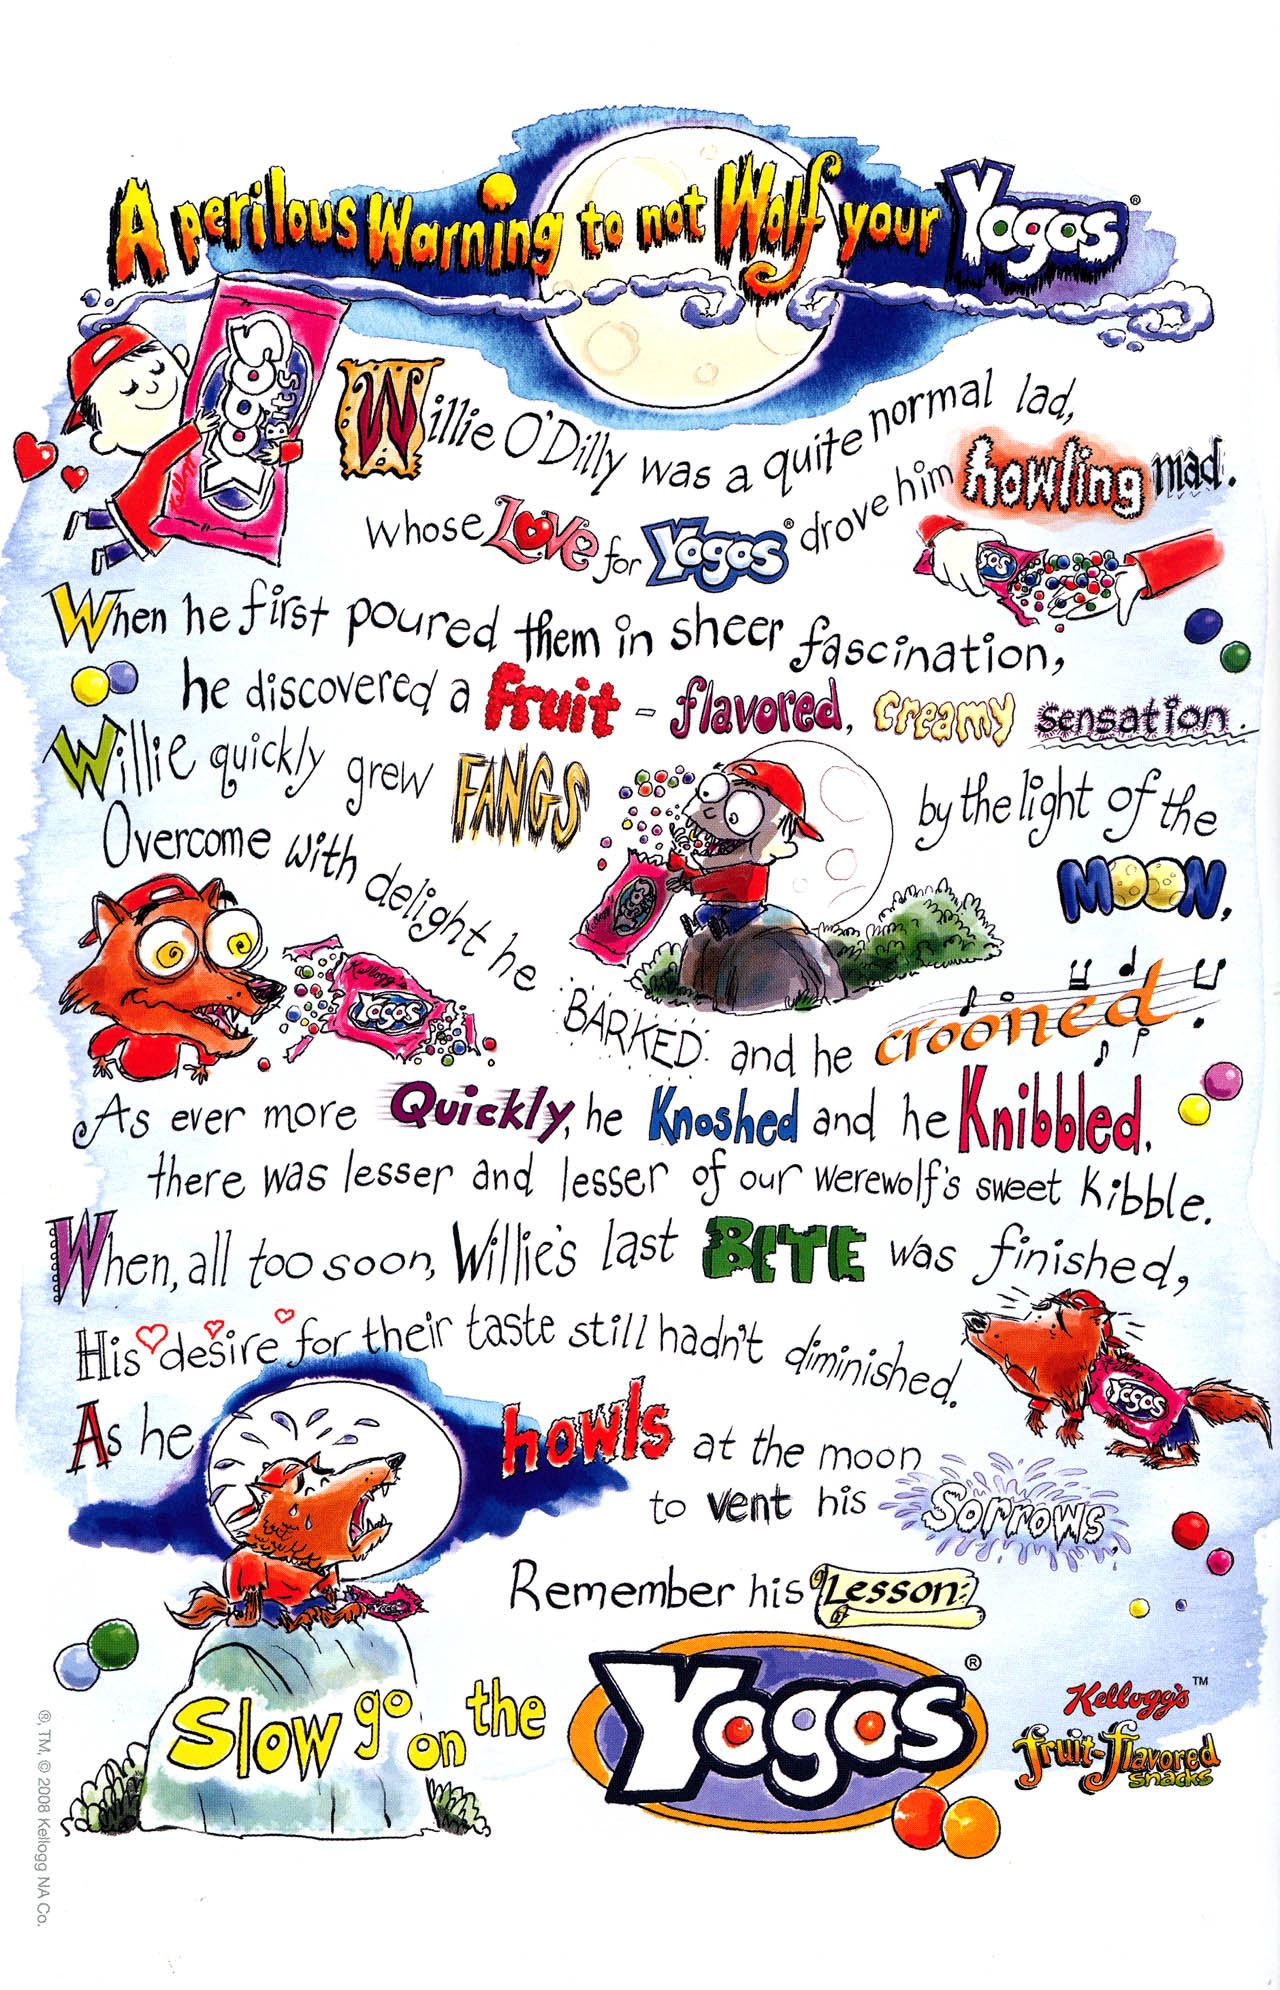 A perilous Warning to not Wolf your Yogos®
Yogos Bits
Kellogg's
Willie O'Dilly was a quite normal lad,
whose Love for Yogos® drove him howling mad.
When he first poured them in sheer fascination,
he discovered a fruit-flavored, creamy sensation.
Willie quickly grew FANGS by the light of the MOON,
Overcome with delight he BARKED and he crooned.
Kellogg's
Yogos
As ever more Quickly, he Knoshed and he Knibbled,
there was lesser and lesser of our werewolf's sweet kibble.
When, all too soon, Willie's last BITE was finished,
His desire for their taste still hadn't diminished.
Kellogg's
Yogos
As he howls at the moon
to vent his Sorrows,
Remember his Lesson:
Slow go on the Yogos®
Kellogg's™
fruit-flavored
snacks
®, TM, © 2008 Kellogg NA Co.